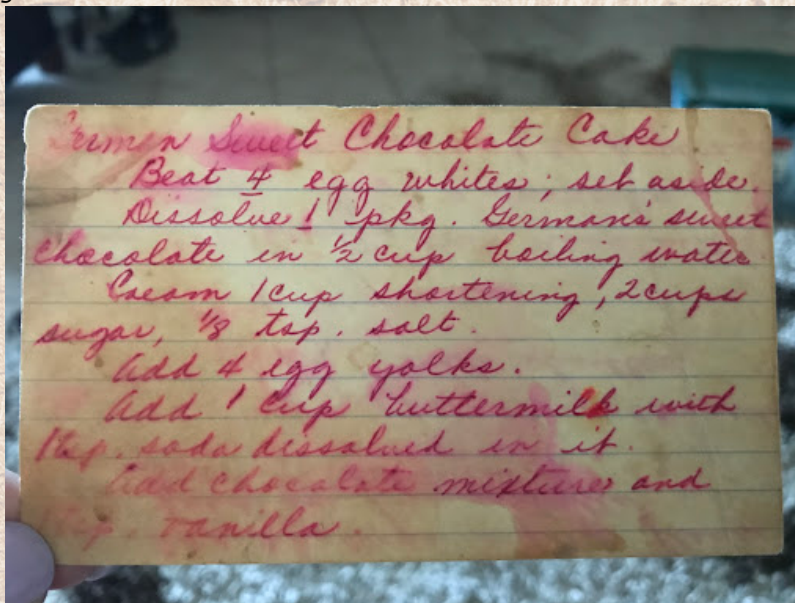 German Sweet Chocolate Cake
Beat 4 egg whites; set aside.
Dissolve 1 pkg. German's sweet
chocolate in ½ cup boiling water
Cream 1 cup shortening, 2 cups
sugar, ⅛ tsp. salt.
Add 4 egg yolks.
Add 1 cup buttermilk with
1 tsp. soda dissolved in it.
Add chocolate mixture and
tsp. vanilla.